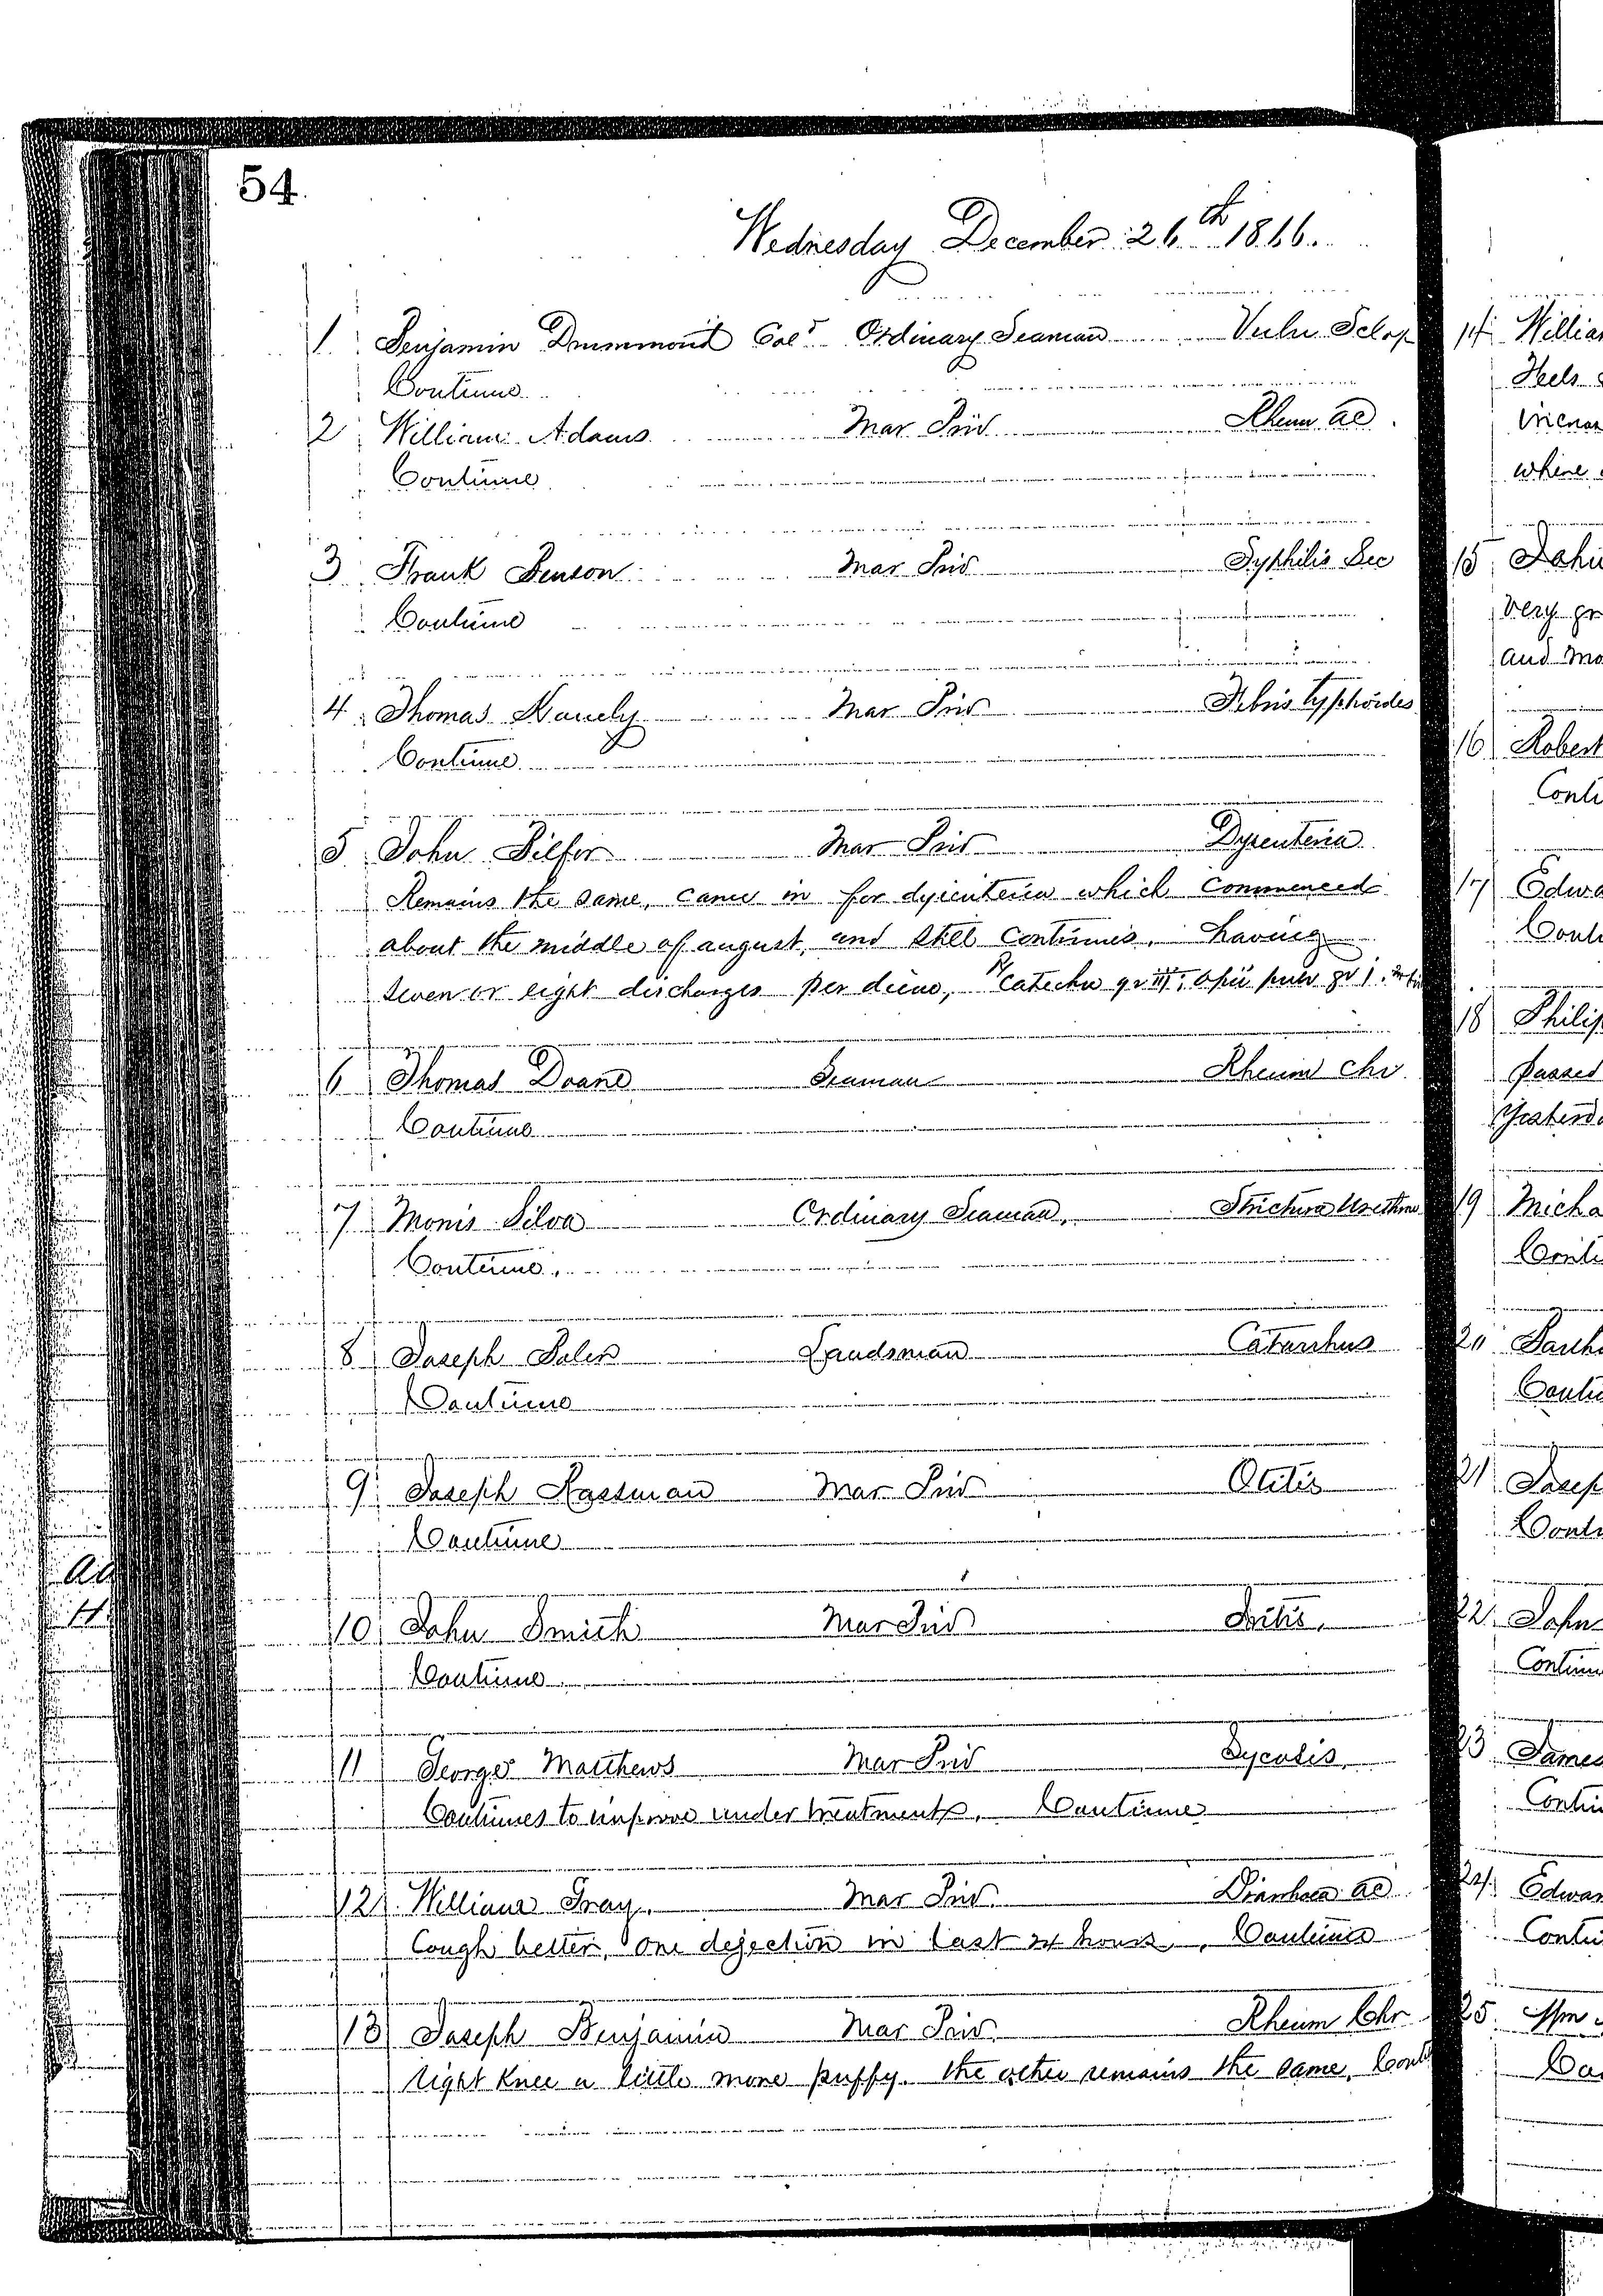 54.
Wednesday December 26th 1866.
1 Benjamin Drummond Cold Ordinary Seaman Vuln Sclop
Continue
2 William Adams Mar Priv Rheum ac
Continue
3 Frank Benson Mar Priv Syphilis Sec
Continue
4 Thomas Mar Priv Febris typhoides
Continue
5 John Mar Priv Dysenteria
Remains the same, came in for dysenteria which commenced
about the middle of august, and still continues. having
seven or eight discharges per diem, ℞ catechu gr III; opii pulv gr j.
6 Thomas Doane Seaman Rheum chr
Continue
7 Monis Silva Ordinary Seaman, Strictura Urethra
Continue.
8 Joseph Landsman Catarrhus
Continue
9 Joseph Mar Priv Otitis
Continue
10 John Smith Mar Priv Iritis,
Continue
11 George Matthews Mar Priv
Continues to improve under treatment, Continue
12 William Gray. Mar Priv. Diarrhoea ac
Cough better, one dejection in last 24 hours, Continue
13 Joseph Benjamin Mar Priv. Rheum Chr
right knee a little more puffy. the other remains the same, Cont
14 Willia
Heels
where
15 John
Very gr
and mo
16 Robert
Conti
17 Edwa
Conti
18 Philip
passed
Yesterd
19 Micha
Conti
20
Conti
21 Josep
Conti
22 John
Continu
23 James
Contin
24 Edwar
Contin
25 Wm
Co